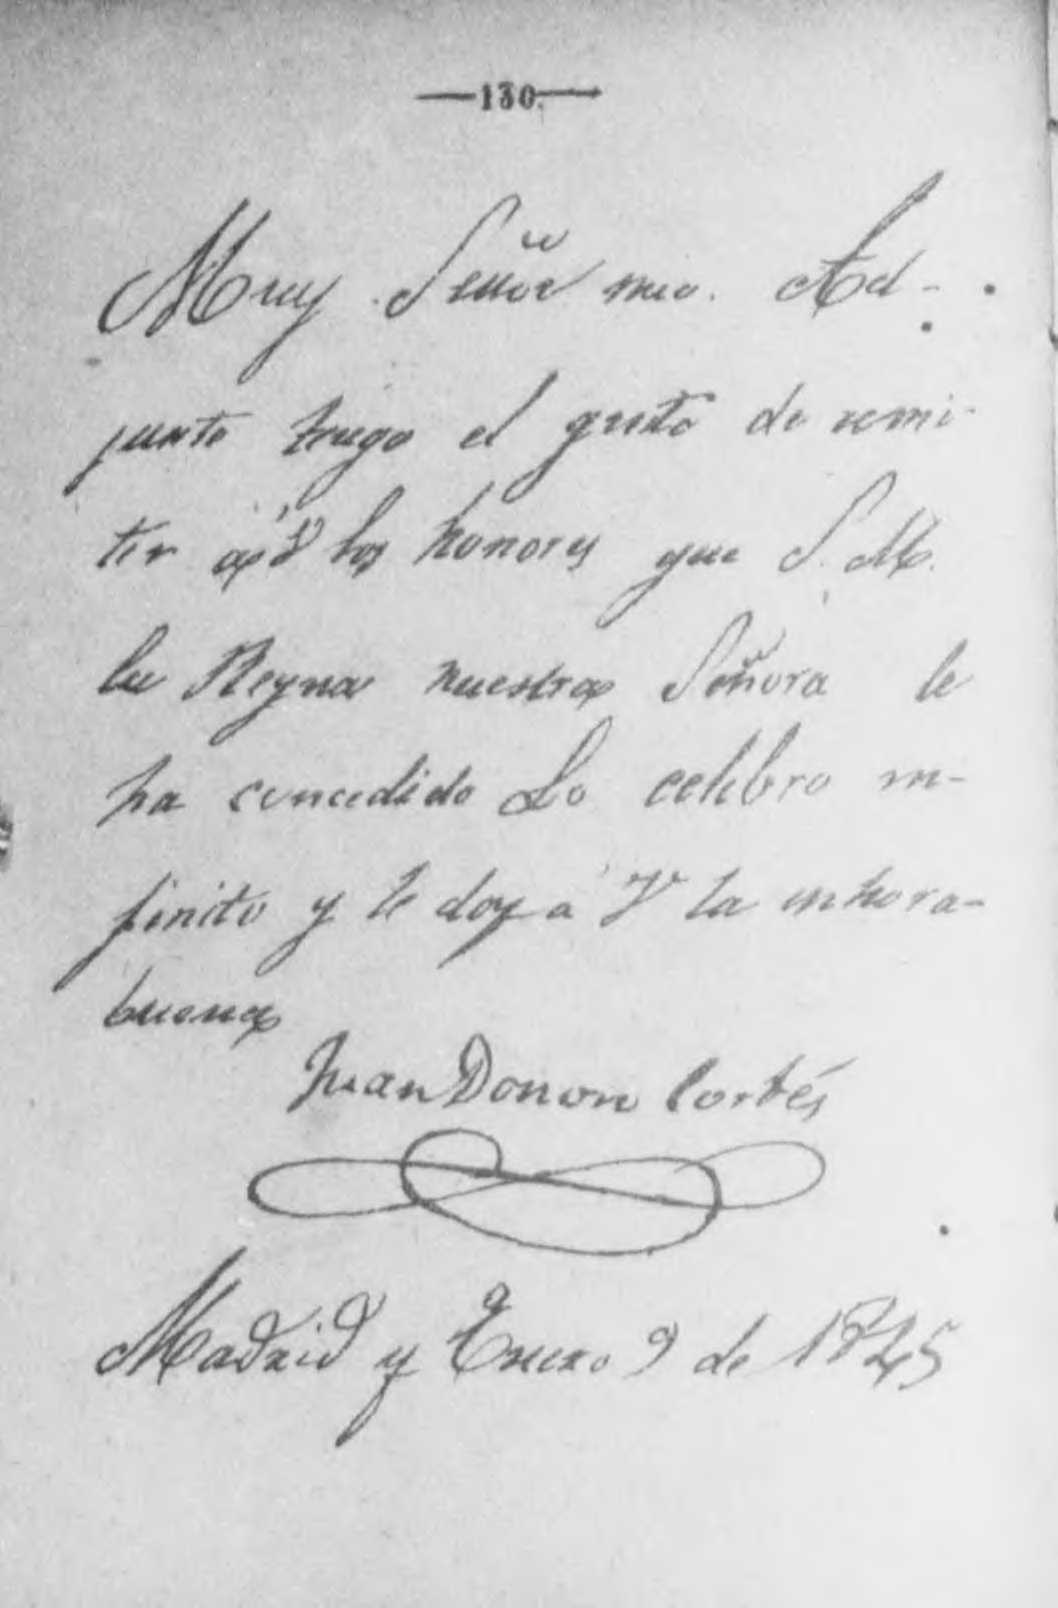 —130.—
Muy Señor mio. Ad-
junto tengo el gusto de remi-
tir a V los honores que S. M.
la Reyna nuestra Señora le
ha concedido Lo celebro in-
finito y le doy a V la enhora-
buena
Juan Donoso Cortés
Madrid y Enero 9 de 1845